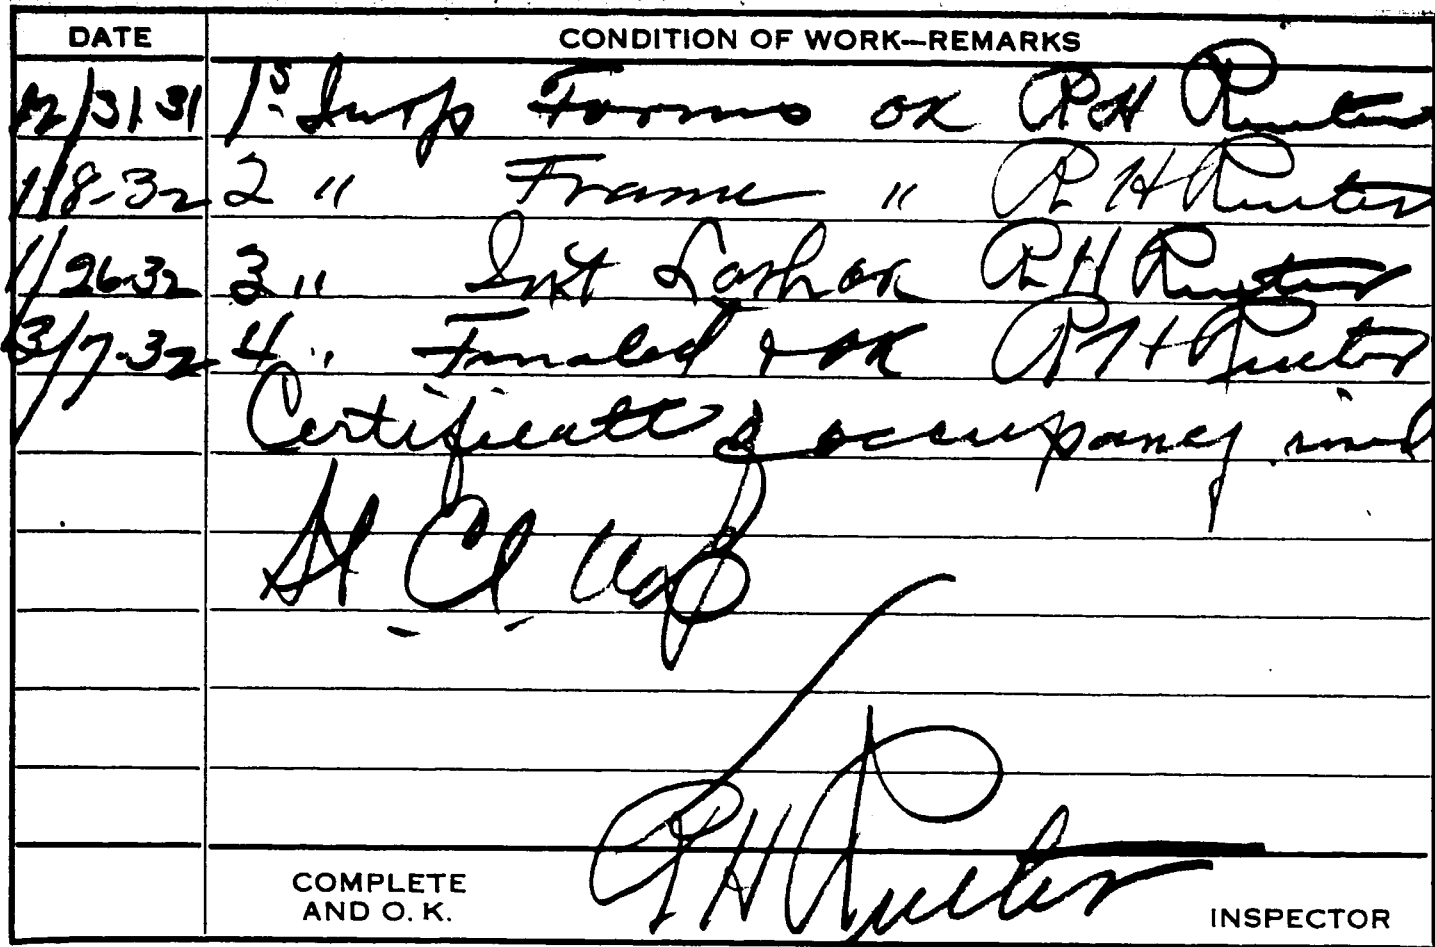 DATE CONDITION OF WORK—REMARKS
12/31 31 1s Insp Forms OK R H Rueter
1/18-32 2 " Frame " R H Rueter
1/26-32 3 " Int Lath OK R H Rueter
3/7-32 4 " Finaled & OK R H Rueter
Certificate & occupancy
COMPLETE
AND O. K. R H Rueter INSPECTOR